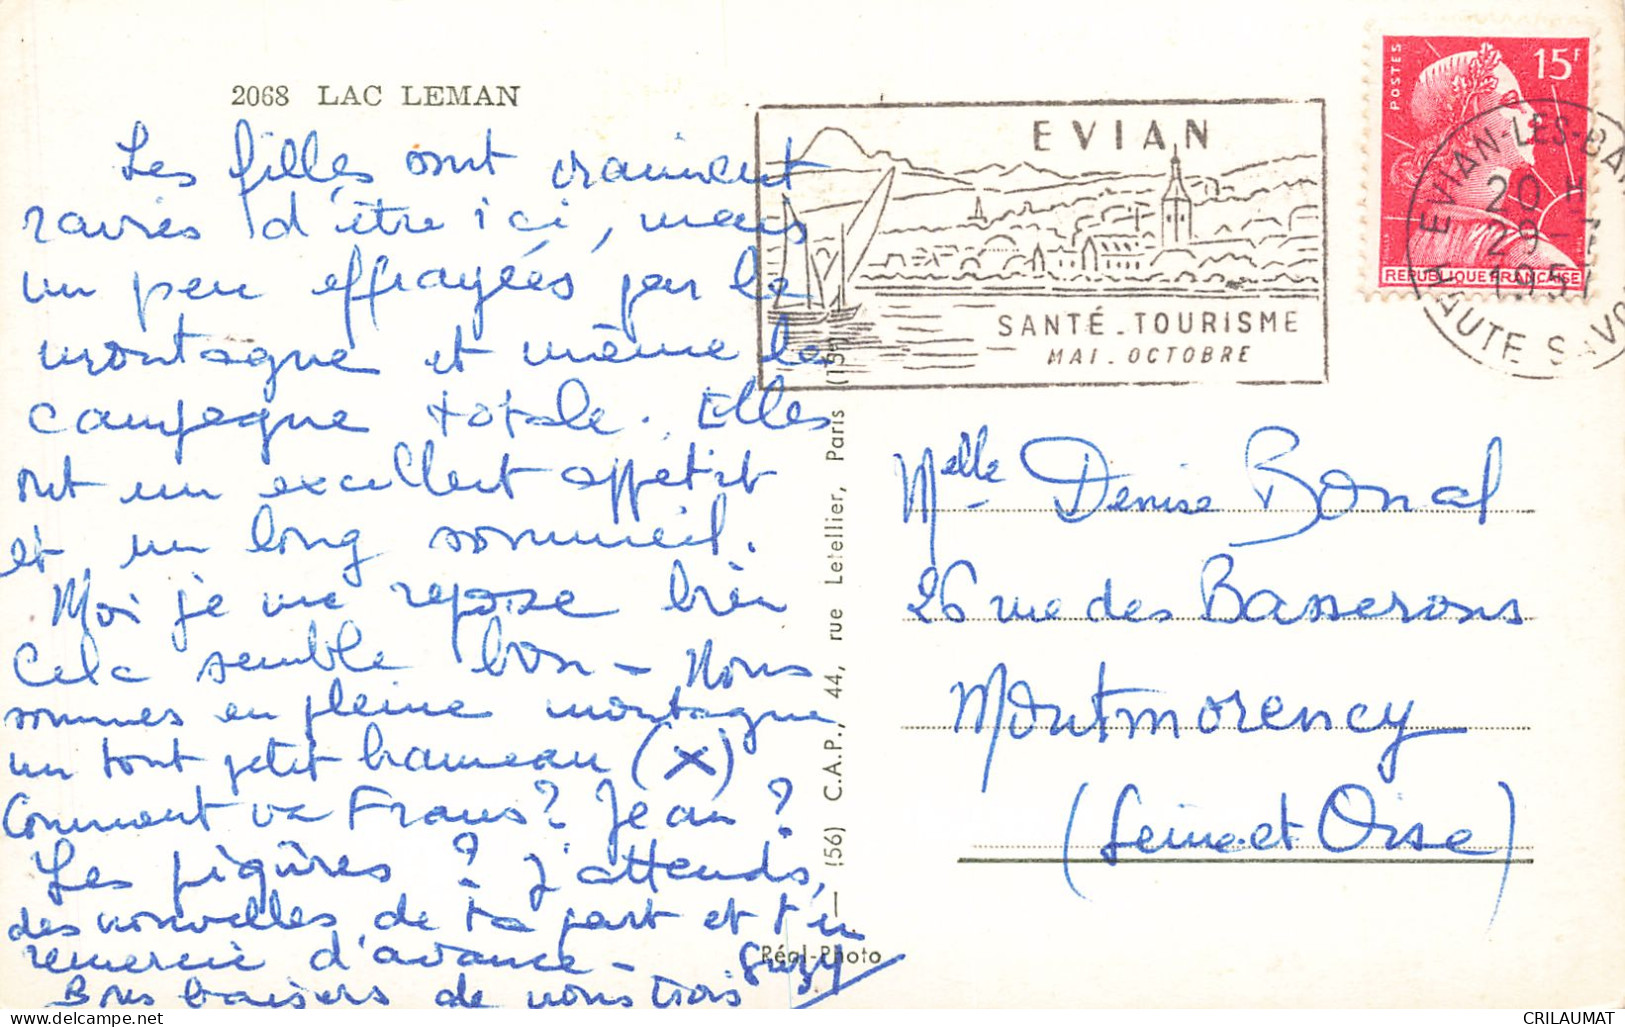 2068 LAC LEMAN
Les filles sont vraiment
ravies d'être ici, mais
un peu effrayées par la
montagne et même la
campagne totale. Elles
ont un excellent appétit
et un long sommeil.
Moi je me repose bien
Cela semble bon - Nous
sommes en pleine montagne
un tout petit hameau (x)
Comment va Frans? Jean?
Les piqûres? J'attends,
des nouvelles de ta part et t'en
remercie d'avance - Suzy
Bons baisers de nous trois
(56) C.A.P., 44, rue Letellier, Paris (15
Réal-Photo
EVIAN
SANTÉ - TOURISME
MAI - OCTOBRE
POSTES
15F
REPUBLIQUE FRANÇAISE
EVIAN-LES-BA
20 H
29 - 7
1957
HAUTE SAVO
Melle Denise Bonal
26 rue des Basserons
Montmorency
(Seine et Oise)
CRILAUMAT